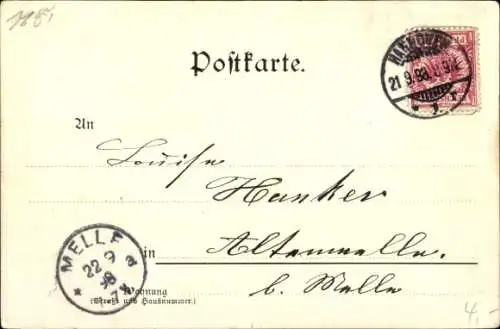 Postkarte.
HANNOVER
21.9.98.
An
Louise
Hanker
in Altenmelle.
b. Melle
MELLE
22 9
98
Wohnung
(Straße und Hausnummer.)
4,-